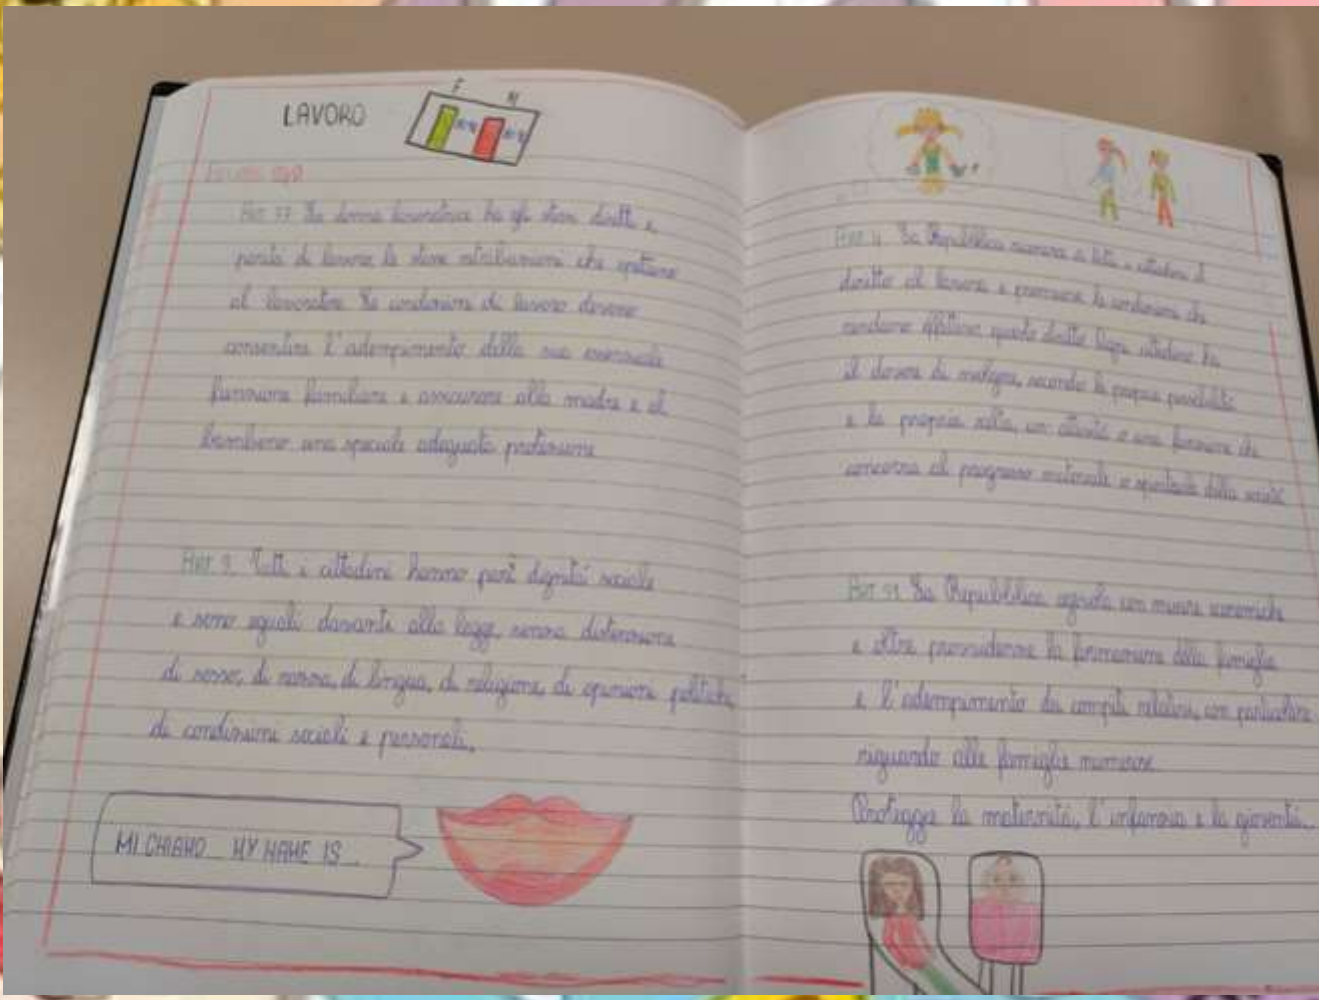 LAVORO
F M
ART. 37 La donna lavoratrice ha gli stessi diritti e,
parità di lavoro, le stesse retribuzioni che spettano
al lavoratore. Le condizioni di lavoro devono
consentire l'adempimento della sua essenziale
funzione familiare e assicurare alla madre e al
bambino una speciale adeguata protezione
ART. 3 Tutti i cittadini hanno pari dignità sociale
e sono eguali davanti alla legge, senza distinzione
di sesso, di razza, di lingua, di religione, di opinioni politiche,
di condizioni sociali e personali.
MI CHIAMO... MY NAME IS...
ART. 4 La Repubblica riconosce a tutti i cittadini il
diritto al lavoro e promuove le condizioni che
rendano effettivo questo diritto. Ogni cittadino ha
il dovere di svolgere, secondo le proprie possibilità
e la propria scelta, un'attività o una funzione che
concorra al progresso materiale o spirituale della società
ART. 31 La Repubblica agevola con misure economiche
e altre provvidenze la formazione della famiglia
e l'adempimento dei compiti relativi, con particolare
riguardo alle famiglie numerose.
Protegge la maternità, l'infanzia e la gioventù...